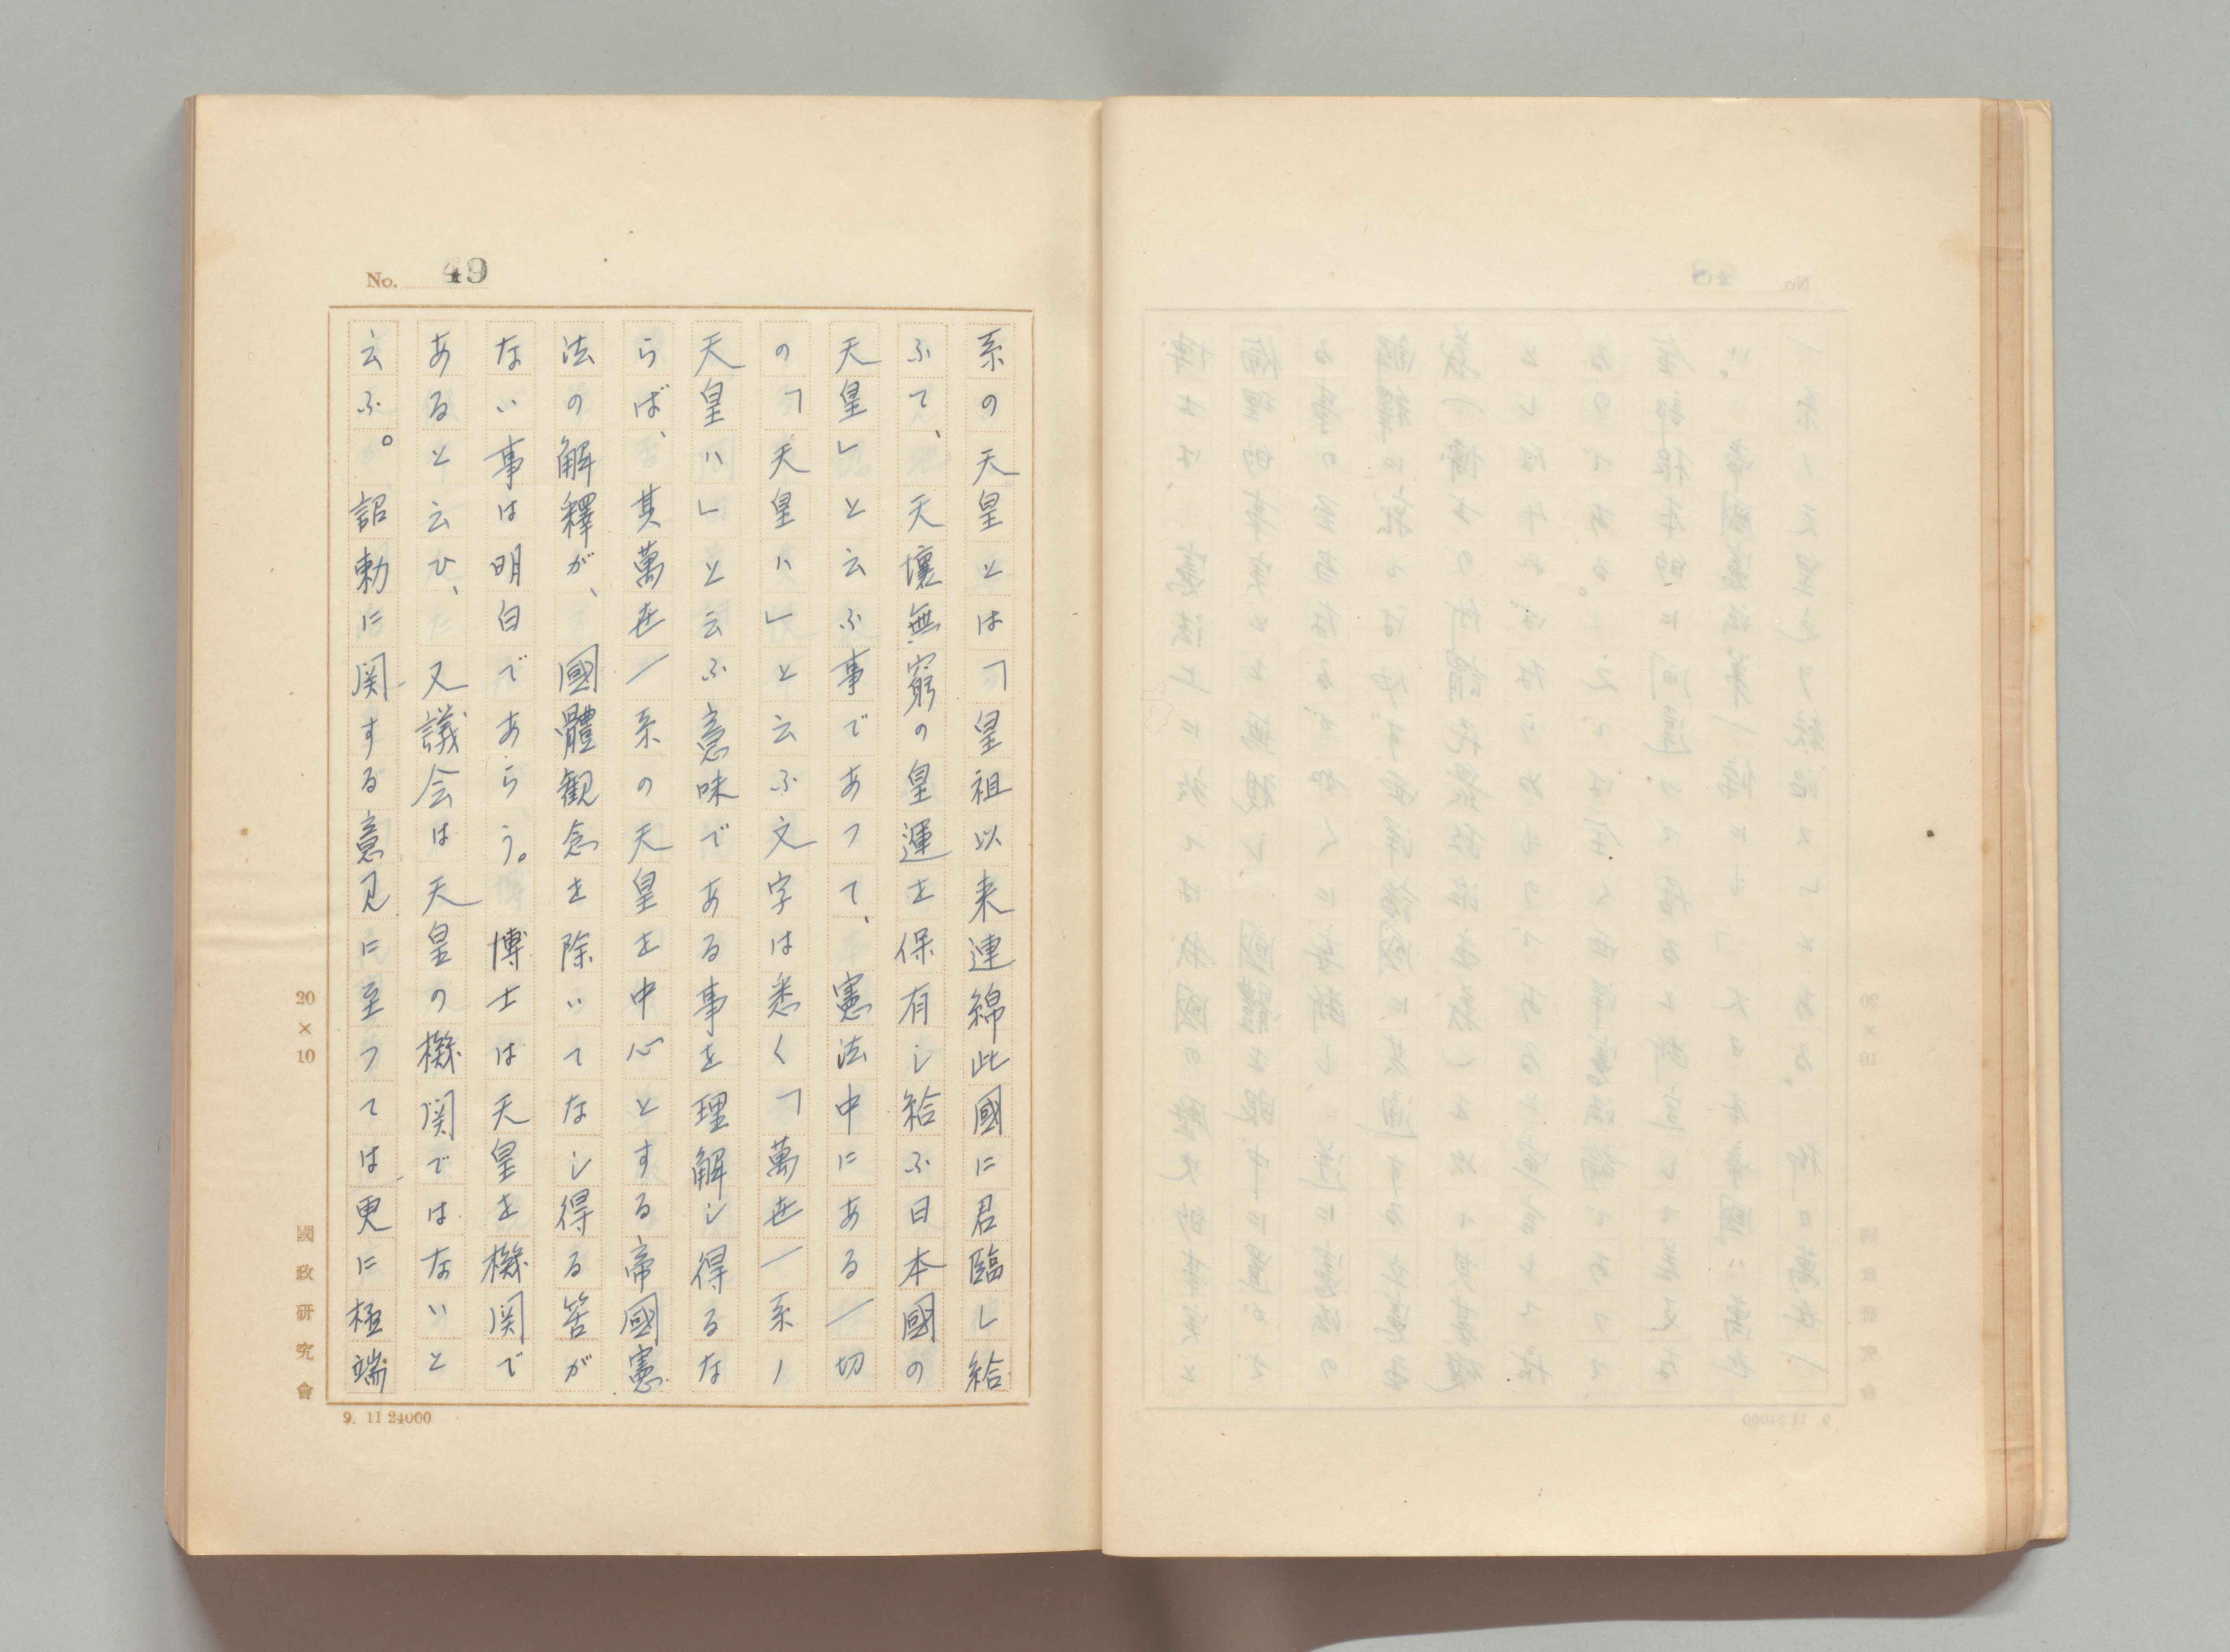 No. 49
系の天皇とは「皇祖以来連綿此國に君臨し給
ふて、天壤無窮の皇運を保有し給ふ日本國の
天皇」と云ふ事であつて、憲法中にある一切
の「天皇ハ」と云ふ文字は悉く「萬世一系ノ
天皇ハ」と云ふ意味である事を理解し得るな
らば、其萬世一系の天皇を中心とする帝國憲
法の解釋が、國體観念を除いてなし得る筈が
ない事は明白であらう。博士は天皇を機関で
あると云ひ、又議会は天皇の機関ではないと
云ふ。詔勅に関する意見に至つては更に極端
20×10
國政研究會
9. 11 24000